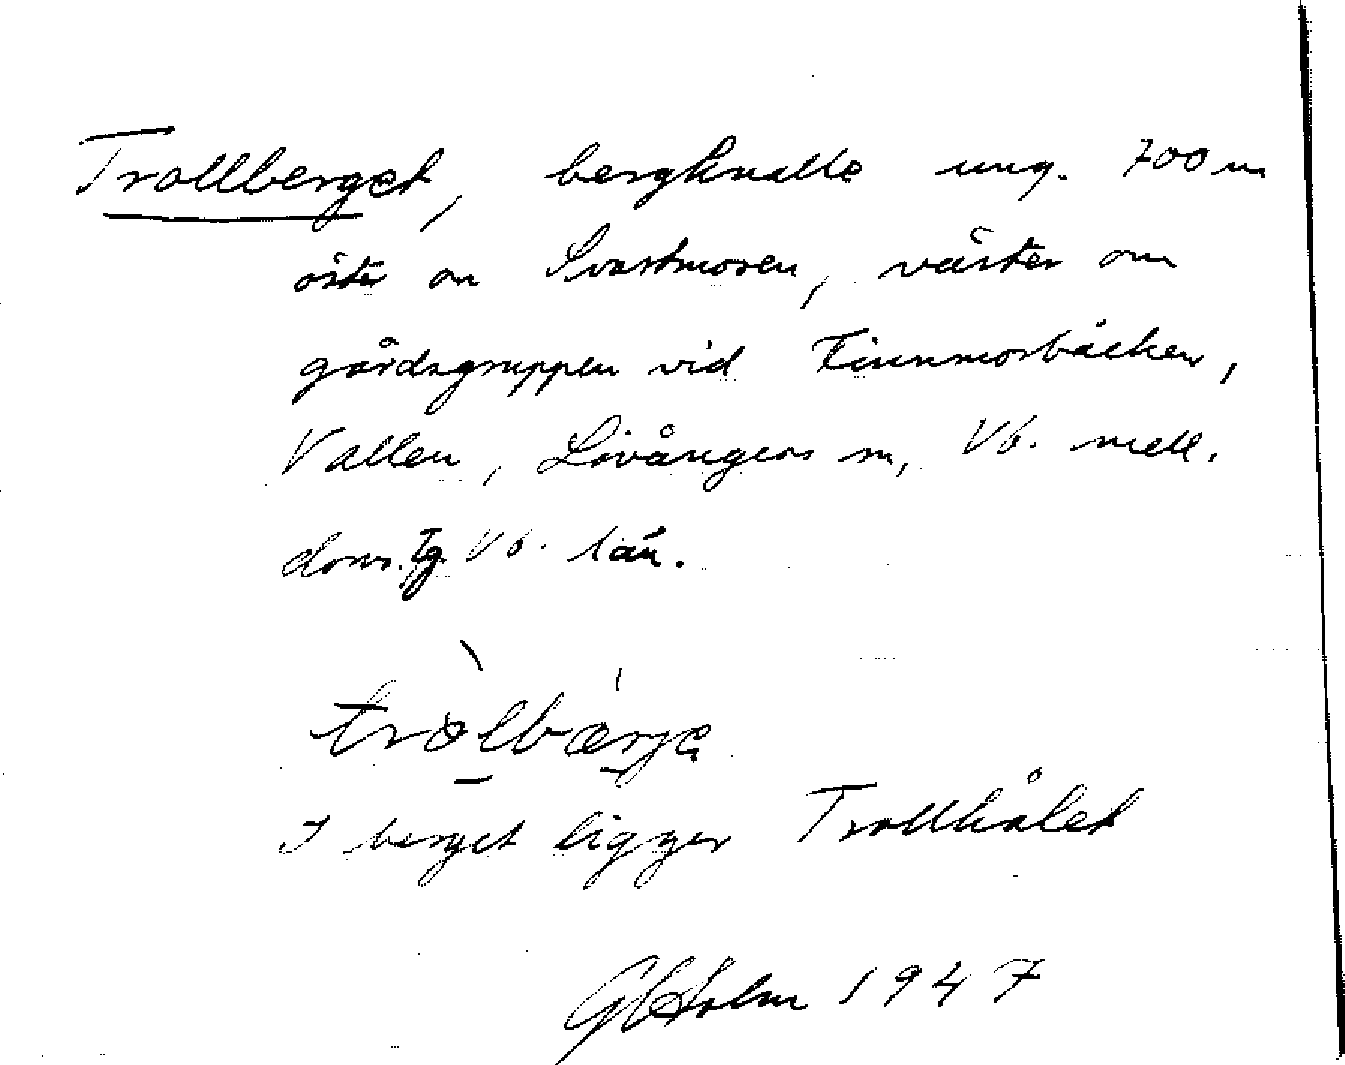 Trollberget, bergknalle ung. 700 m
öster om Svartmoren, väster om
gårdsgruppen vid Finnmorbäcken,
Vallen, Lövångers sn, Vb. mell.
doms. tg. Vb. län.
tròlbǽrjə
I berget ligger Trollhålet
Holm 1947